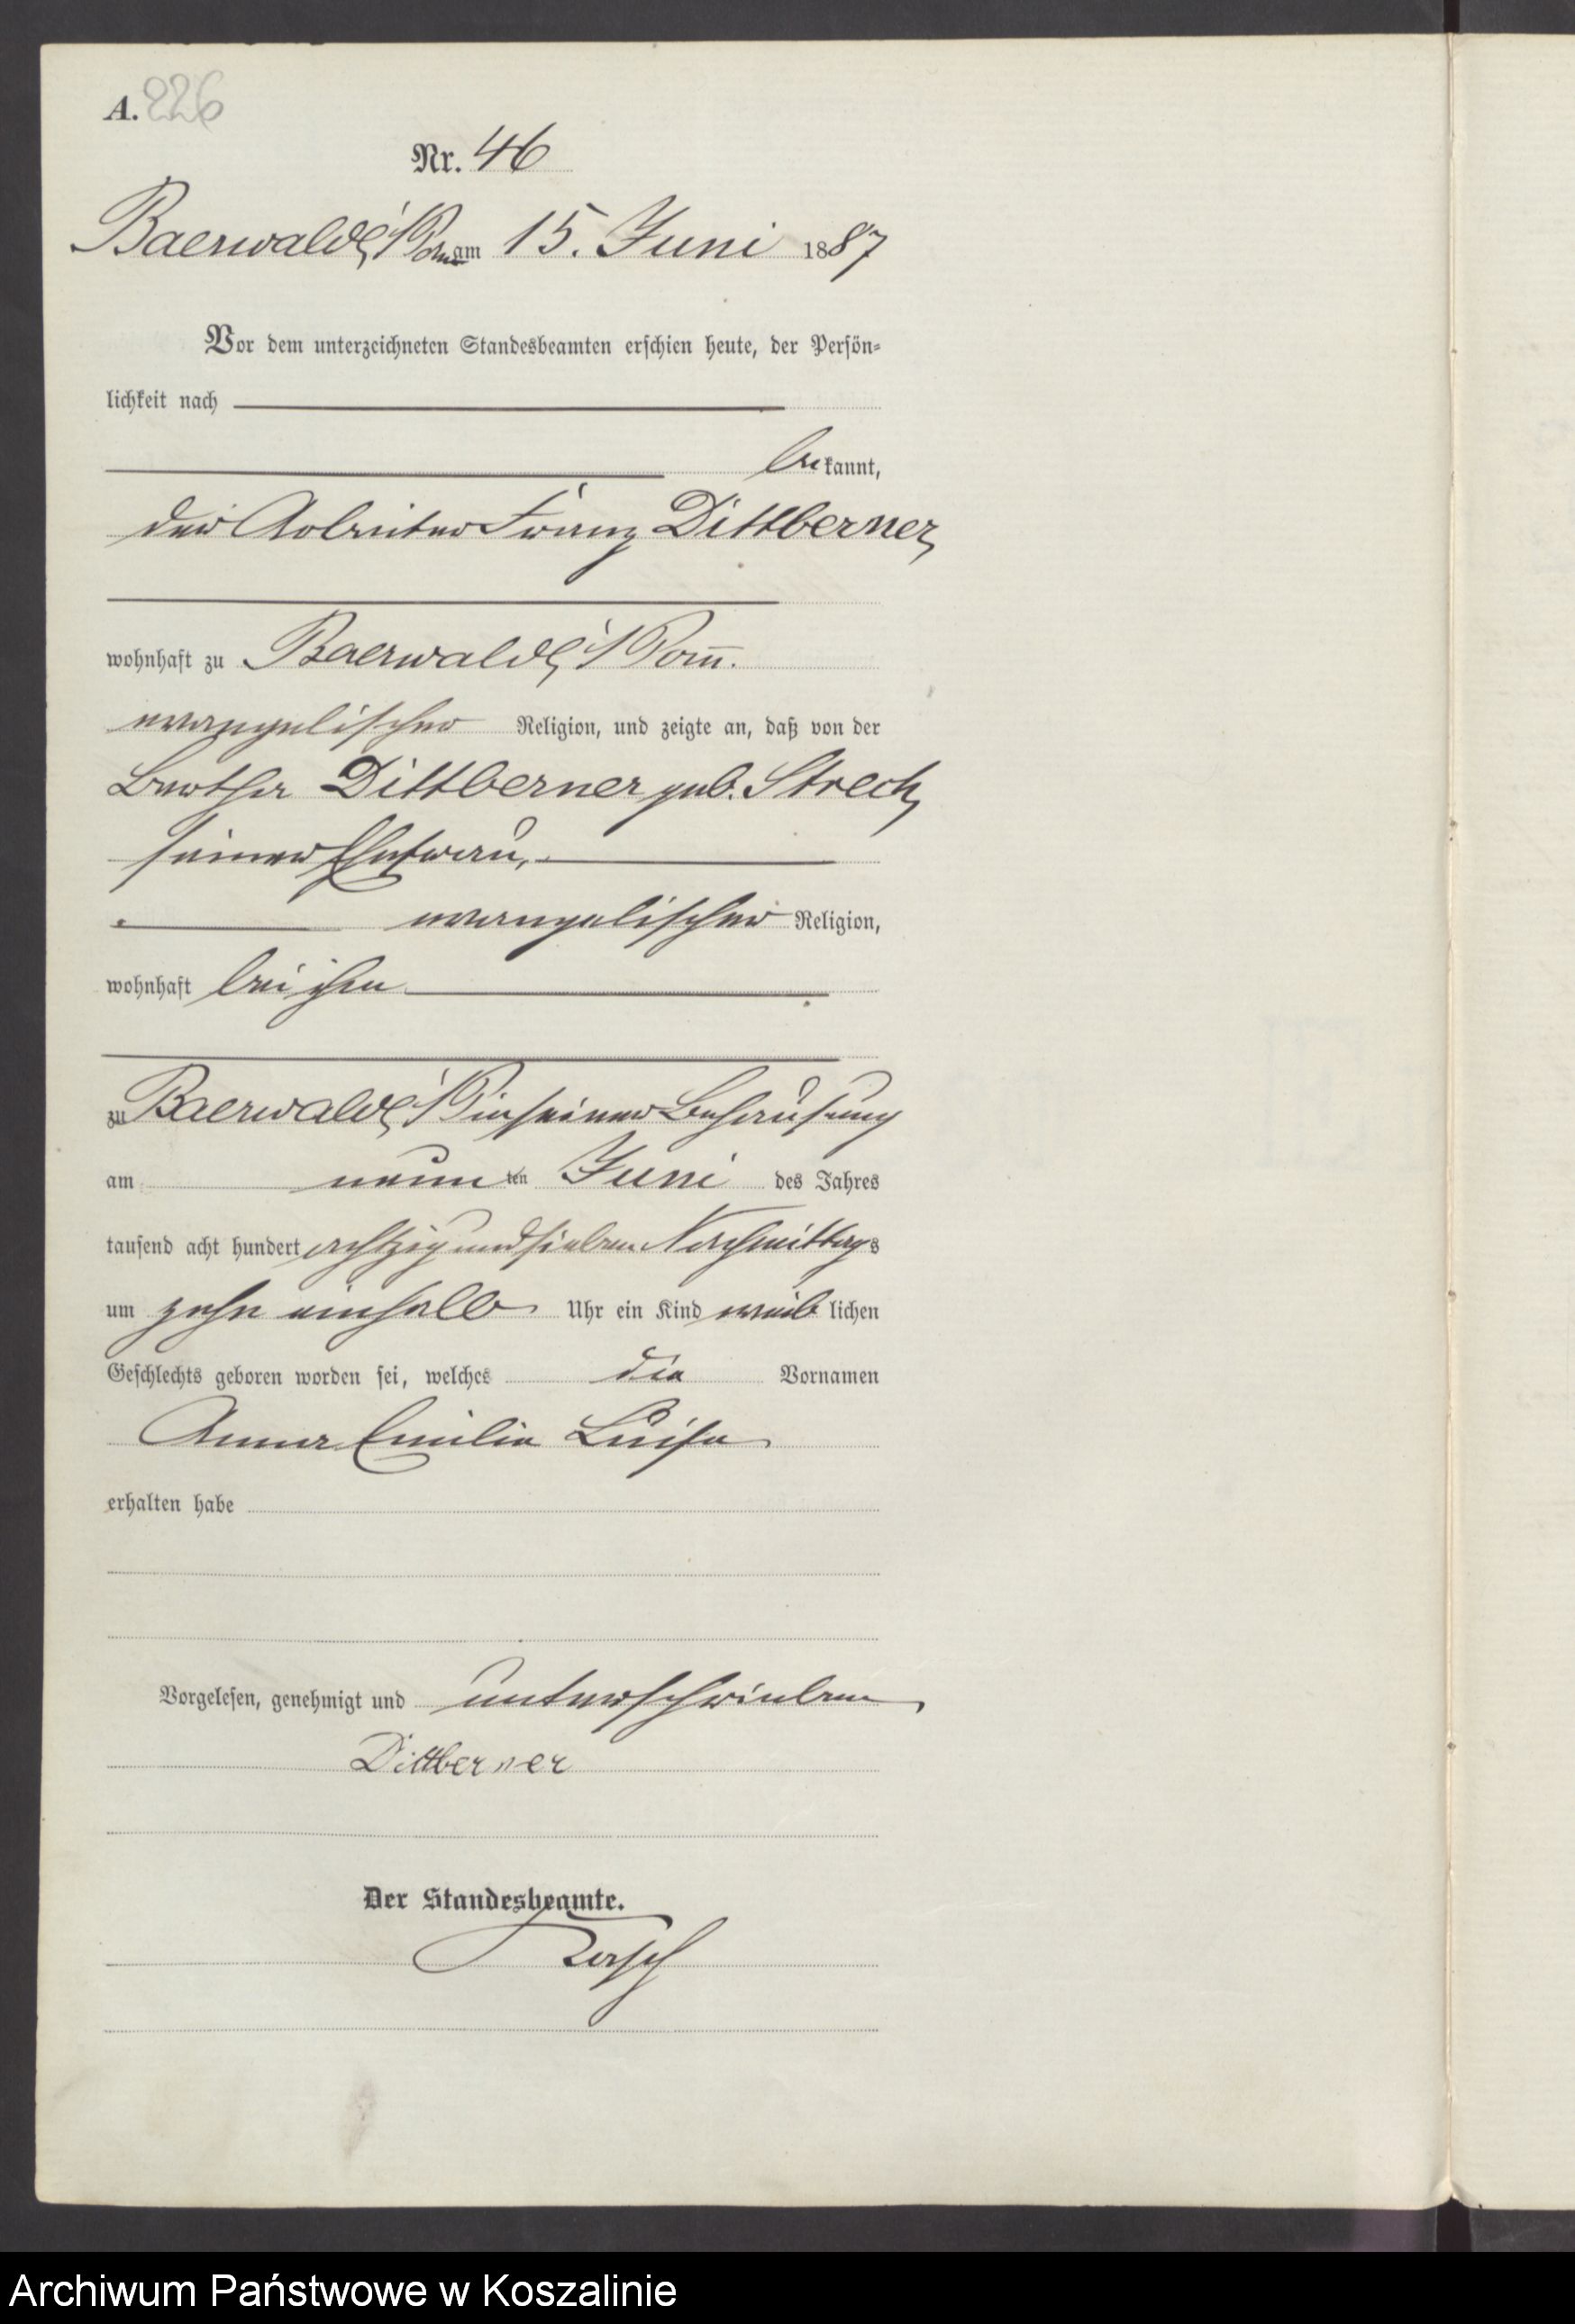 A. 226
Nr. 46
Baerwalde i/Pom am 15. Juni 1887
Vor dem unterzeichneten Standesbeamten erschien heute, der Persön-
lichkeit nach
bekannt,
der Arbeiter Franz Dittberner,
wohnhaft zu Baerwalde i/Pom.
evangelischer Religion, und zeigte an, daß von der
Bertha Dittberner geb. Strech,
seiner Ehefrau,
evangelischer Religion,
wohnhaft bei ihm
zu Baerwalde i/P in seiner Behausung
am neunten Juni des Jahres
tausend acht hundert achtzig und sieben Nachmittags
um zehn einhalb Uhr ein Kind weiblichen
Geschlechts geboren worden sei, welches die Vornamen
Anna Emilie Luise
erhalten habe
Vorgelesen, genehmigt und unterschrieben
Dittberner
Der Standesbeamte.
Archiwum Państwowe w Koszalinie